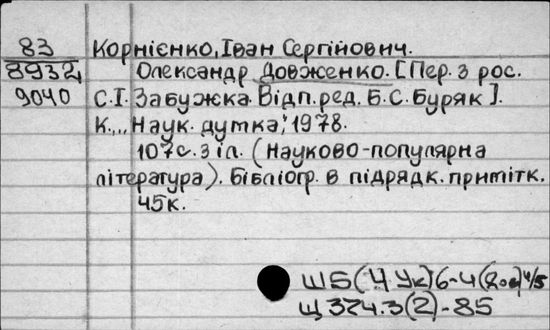 83 Корнієнко, Іван Сергійович.
8932 Олександр Довженко. [Пер. з рос.
9040 С.І. Забужка. Відп. ред. Б.С. Буряк].
К., „Наук. думка", 1978.
107с. з іл. (Науково-популярна
література). Бібліогр. в підрядк. примітк.
45к.
Ш5(4Ук)6-4
Щ374.3(2)-85